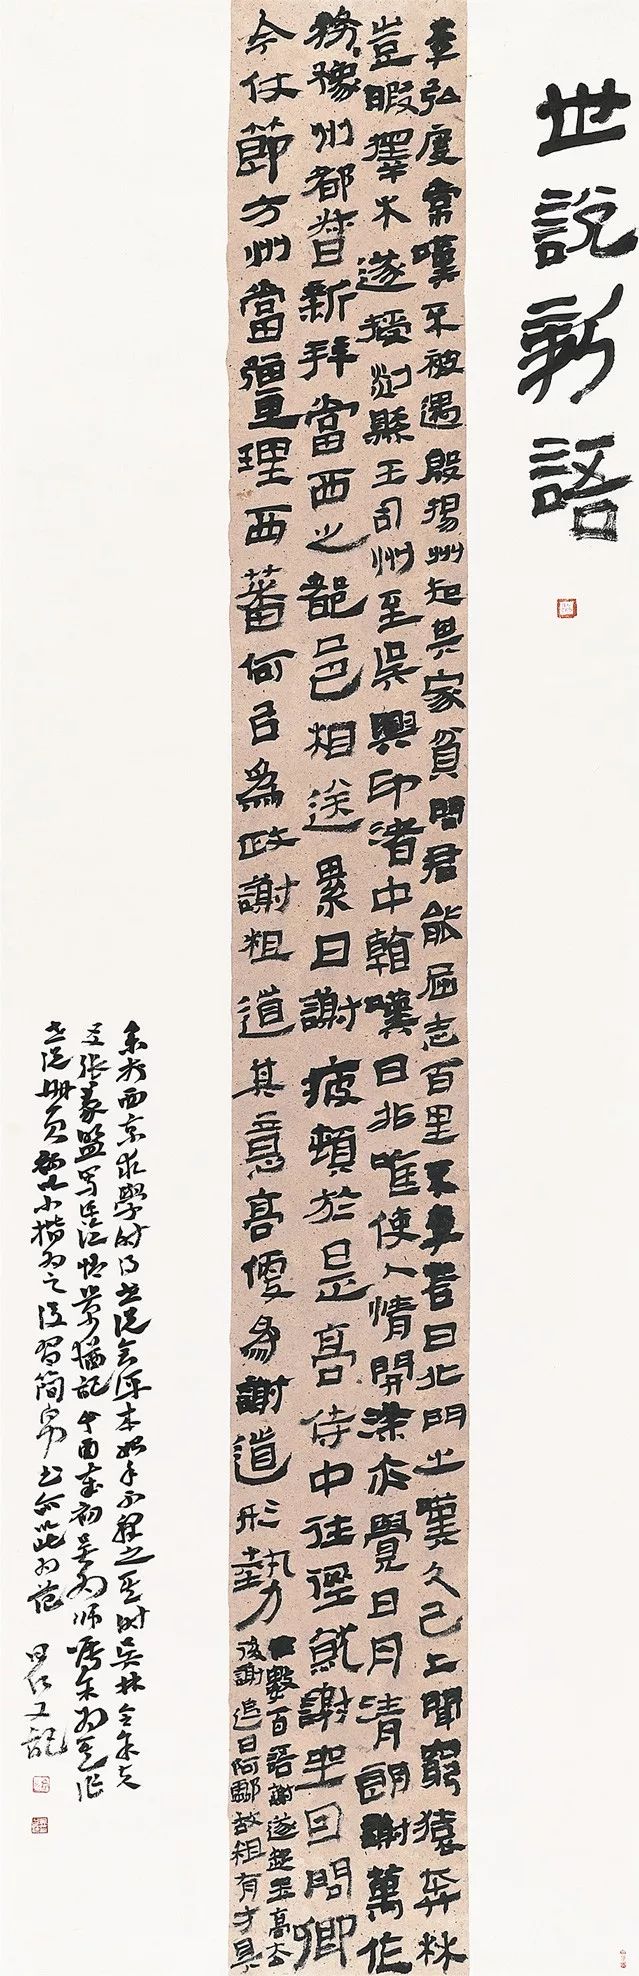 世說新語
李弘度常嘆不被遇殷揚州知其家貧問君能屈志百里不李荅曰北門之嘆久已上聞窮猿奔林
豈暇擇木遂授剡縣王司州至吳興印渚中看嘆曰非唯使人情開滌亦覺日月清朗謝萬作
務豫州都督新拜當西之都邑相送累日謝疲頓於是高侍中往徑就謝坐因問卿
今仗節方州當彊理西蕃何以為政謝粗道其意高便為謝道形勢
作數百語謝遂起坐高去
後謝追曰阿酃故粗有才具
余於西京求學時得世說會評本始手不釋之其時吳林
張 情景猶記 酉歲初吳為師囑余為之作
世說冊頁初以小楷為之後習簡帛書亦以此為范 又記